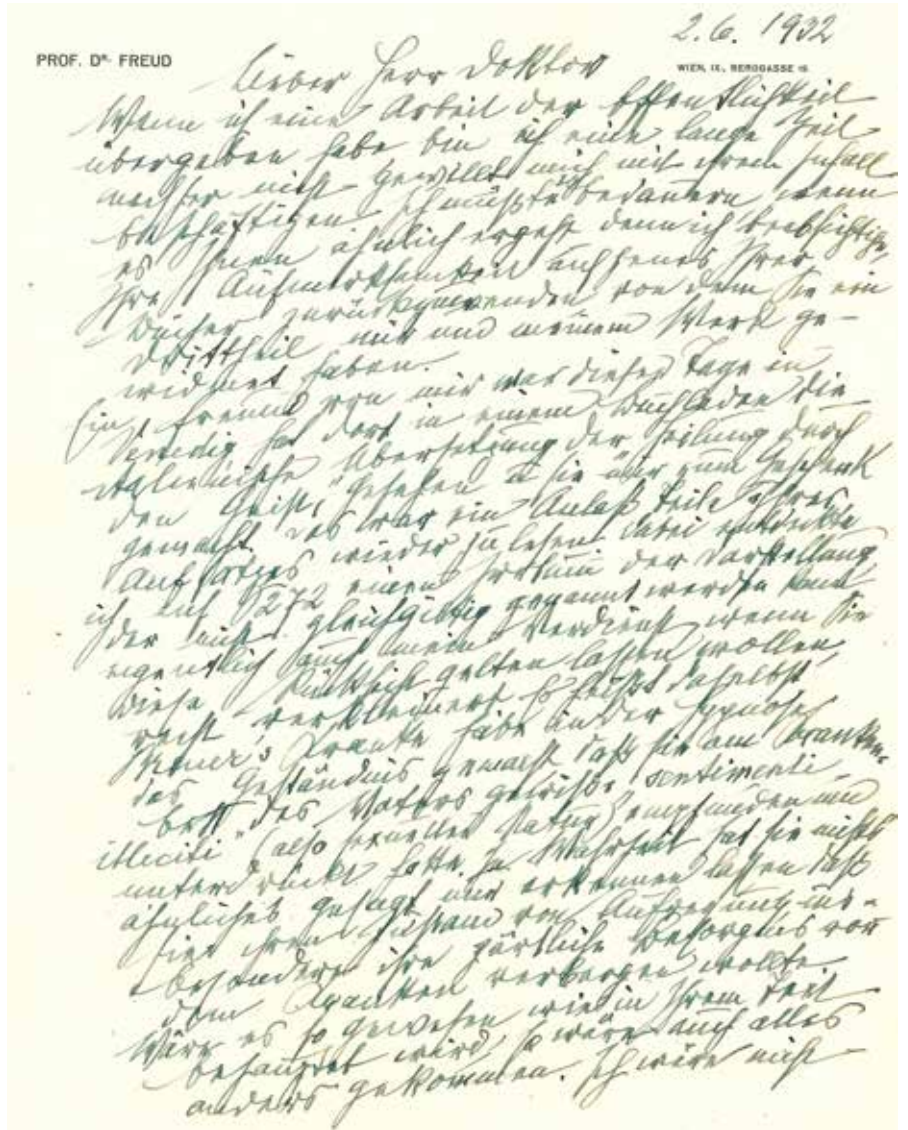 2.6. 1932
PROF. DR. FREUD
WIEN, IX., BERGGASSE 19
Lieber Herr Doktor
Wenn ich eine Arbeit der Öffentlichkeit
übergeben habe bin ich eine lange Zeit
nachher nicht gewillt mich mit ihrem Inhalt
zu beschäftigen. Ich müßte bedauern wenn
es Ihnen ähnlich ergeht denn ich beabsichtige,
Ihre Aufmerksamkeit auf jenes Ihrer
Bücher zurückzuwenden von dem Sie ein
Drittheil mir und meinem Werk ge-
widmet haben.
Ein Freund von mir war dieser Tage in
Venedig hat dort in einem Buchladen die
italienische Übersetzung der Heilung durch
den Geist, gesehen u sie mir zum Geschenk
gemacht. Das war ein Anlaß Teile Ihres
Aufsatzes wieder zu lesen. Dabei entdeckte
ich auf S 272 einen Irrtum der Darstellung
der nicht gleichgiltig genannt werden kann
eigentlich auch mein Verdienst, wenn Sie
diese Rücksicht gelten lassen wollen,
recht verkleinert. Es heißt daselbst
Breuer's Kranke habe in der Hypnose
das Geständnis gemacht daß sie am Kranken-
bett des Vaters gewisse "sentimenti
illeciti" (also sexueller Natur) empfunden und
unterdrückt hatte. In Wahrheit hat sie nichts
ähnliches gesagt nur erkennen lassen daß
sie ihren Zustand von Aufregung ins-
besondere ihre zärtliche Besorgnis vor
dem Kranken verbergen wollte
Wäre es so gewesen wie in Ihrem Text
behauptet wird, so wäre auch alles
anders gekommen. Ich wäre nicht